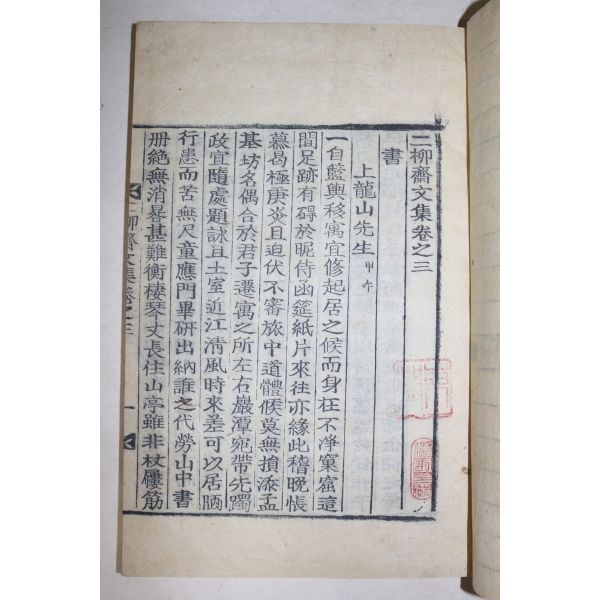 二柳齋文集卷之三
書
上龍山先生 甲午
一自藍輿移寓宜修起居之候而身在不淨窠窟這
間足跡有碍於昵侍函筵紙片來往亦緣此稽晩悵
慕曷極庚炎且迫伏不審旅中道體候莫無損添孟
基坊名偶合於君子遷寓之所左右巖潭宛帶先躅
政宜隨處題詠且土室近江清風時來差可以居陋
行患而苦無尺童應門畢研出納誰之代勞山中書
册絶無消晷甚難衡棲琴丈長住山亭雖非杖屨筋
二柳齋文集卷之三 一